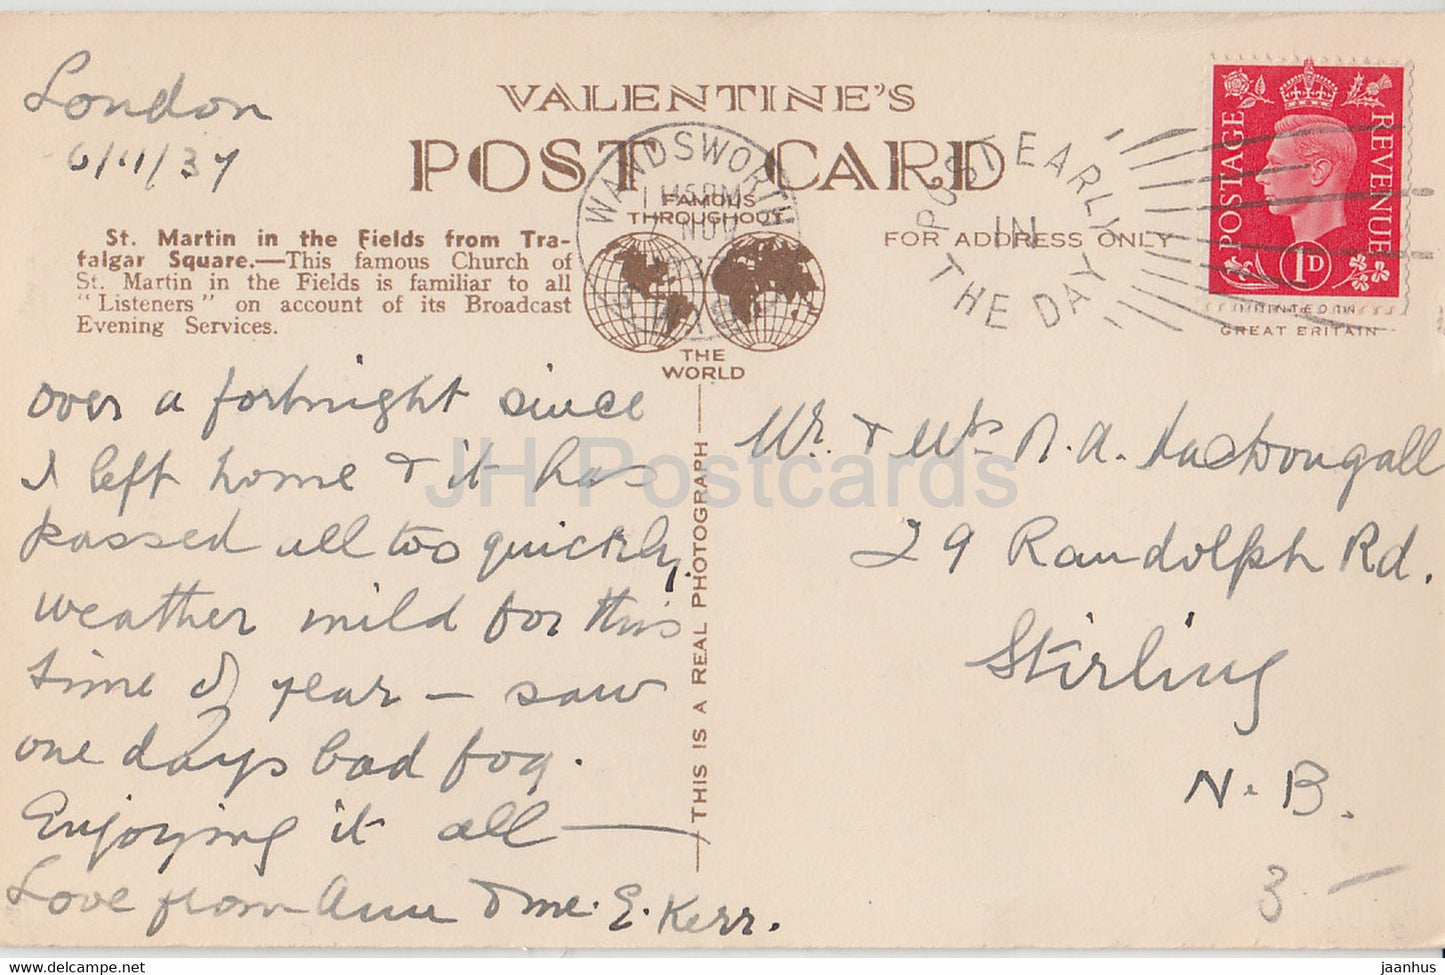 London
6/11/37
VALENTINE'S
POST CARD
FAMOUS
THROUGHOUT
THE
WORLD
WANDSWORTH
NOV
POST EARLY
IN
THE DAY
POSTAGE
REVENUE
1D
FOR ADDRESS ONLY
PRINTED IN
GREAT BRITAIN
St. Martin in the Fields from Tra-
falgar Square.—This famous Church of
St. Martin in the Fields is familiar to all
"Listeners" on account of its Broadcast
Evening Services.
over a fortnight since
I left home & it has
passed all too quickly.
weather mild for this
time of year — saw
one days bad fog.
Enjoying it all —
Love from Ann & me. E. Kerr.
THIS IS A REAL PHOTOGRAPH
Mr. & Mrs N. A. MacDougall
29 Randolph Rd.
Stirling
N. B.
3 -
JH Postcards
https://www.delcampe.net
jaanhus